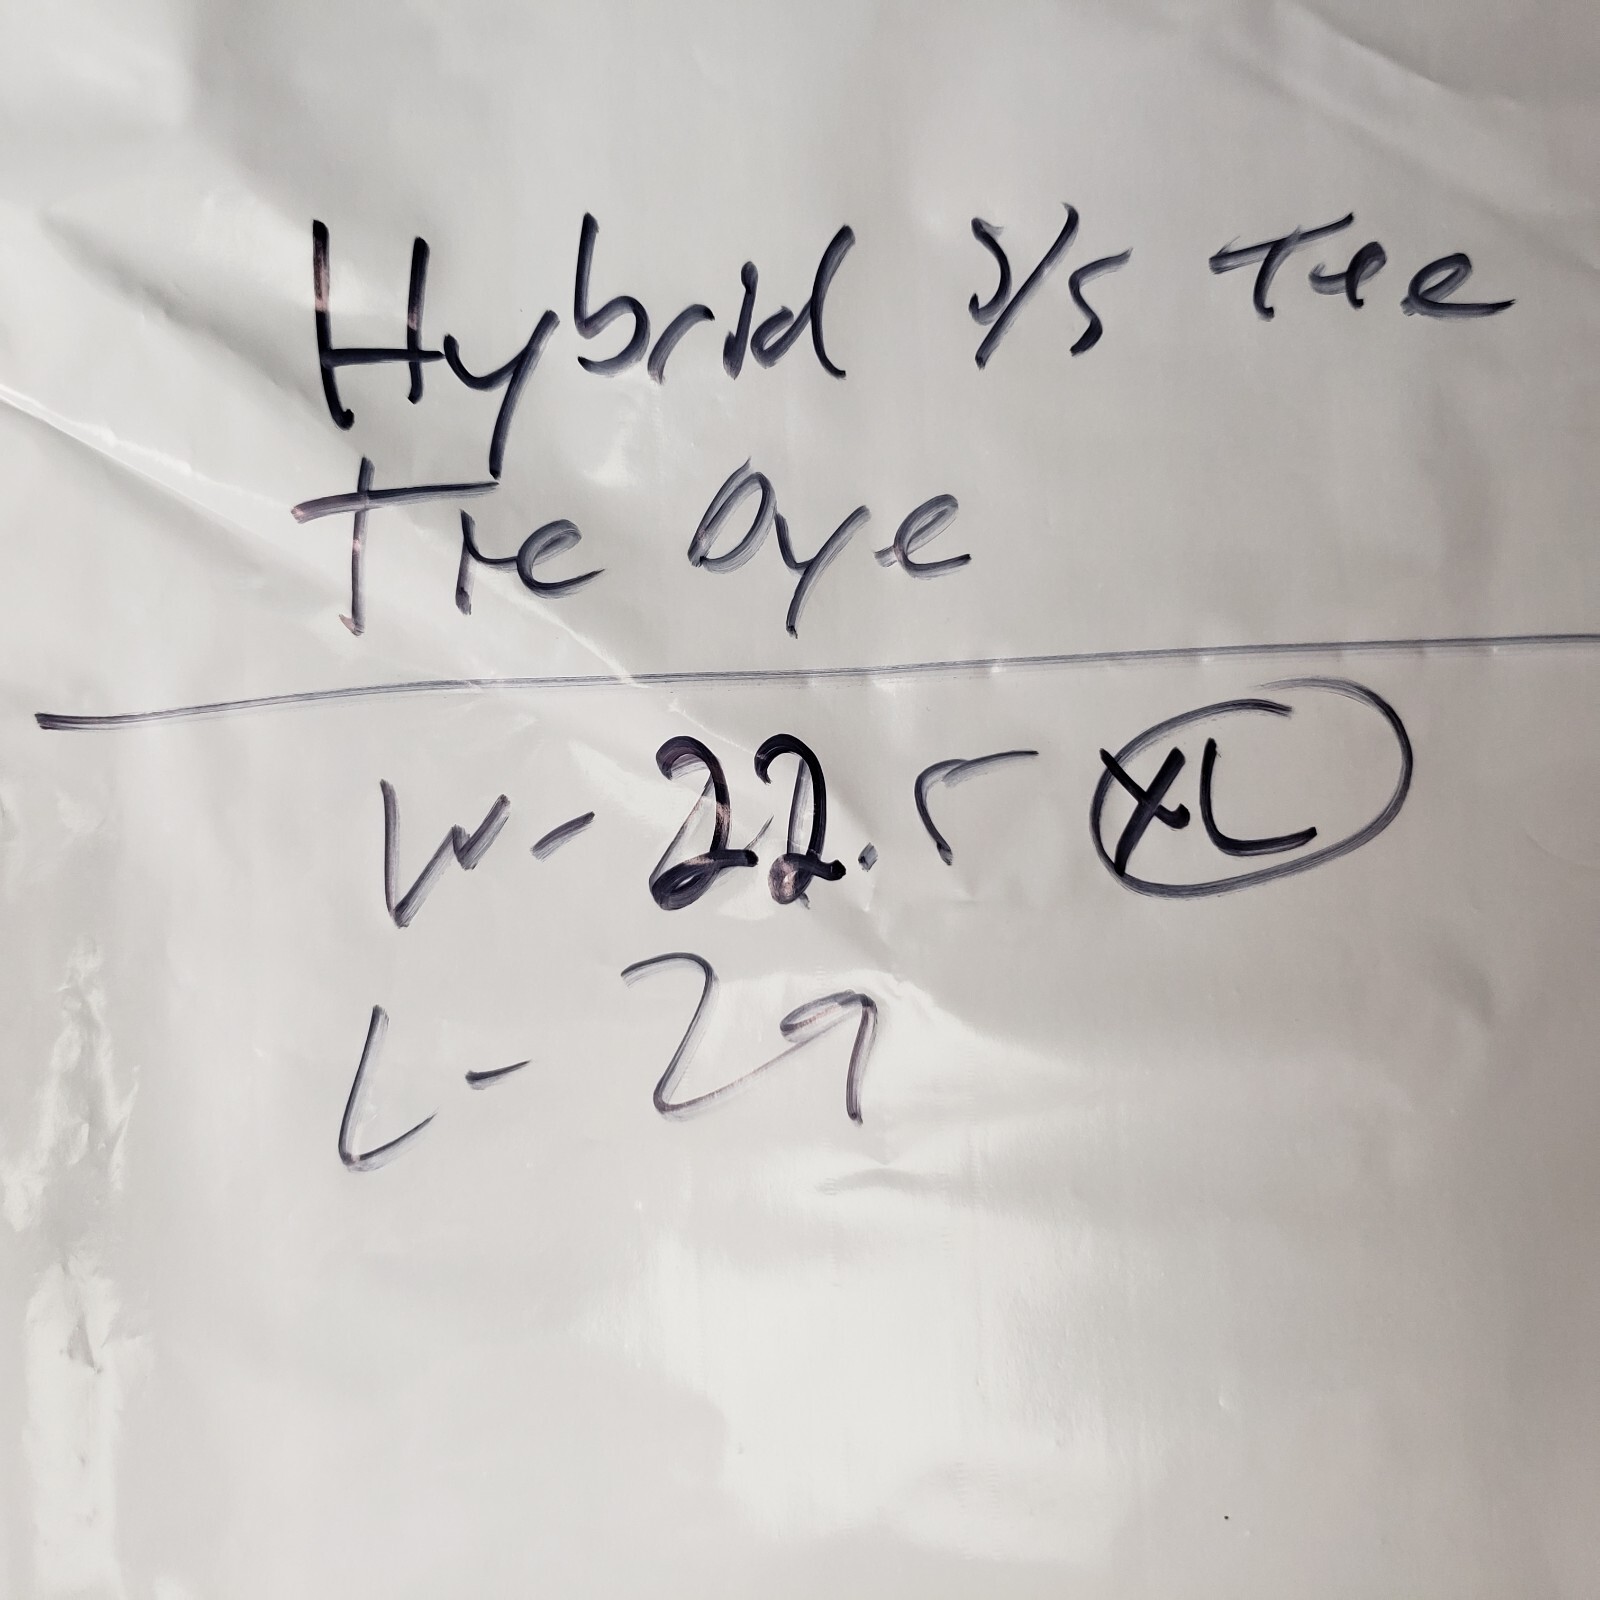 Hybrid S/S Tee
Tie Dye
W - 22.5 XL
L - 29